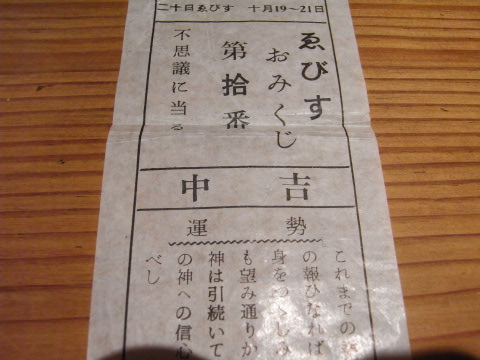 二十日ゑびす 十月19〜21日
ゑびす
おみくじ
第拾番
不思議に当る
中吉
運勢
これまでの
の報ひなれば
身をつくしみ
も望み通りか
神は引続いて
の神への信心
べし